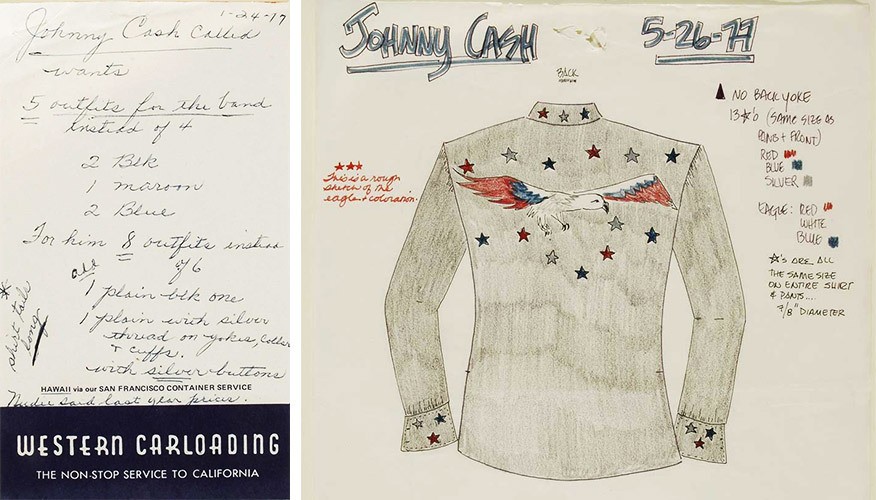 1-24-77
Johnny Cash Called
wants
5 outfits for the band
instead of 4
2 Blk
1 maroon
2 Blue
For him 8 outfits instead
of 6
add
1 plain blk one
1 plain with silver
thread on yokes, Collar
+ cuffs.
with silver buttons
* shirt tale
long
HAWAII via our SAN FRANCISCO CONTAINER SERVICE
said last year prices.
WESTERN CARLOADING
THE NON-STOP SERVICE TO CALIFORNIA
JOHNNY CASH
5-26-77
BACK
NO BACK YOKE
13 ☆'s (SAME SIZE AS
PANT + FRONT)
RED
BLUE
SILVER
EAGLE: RED
WHITE
BLUE
☆'s ARE ALL
THE SAME SIZE
ON ENTIRE SHIRT
& PANTS....
7/8" DIAMETER
★★★
This is a rough
sketch of the
eagle + coloration.